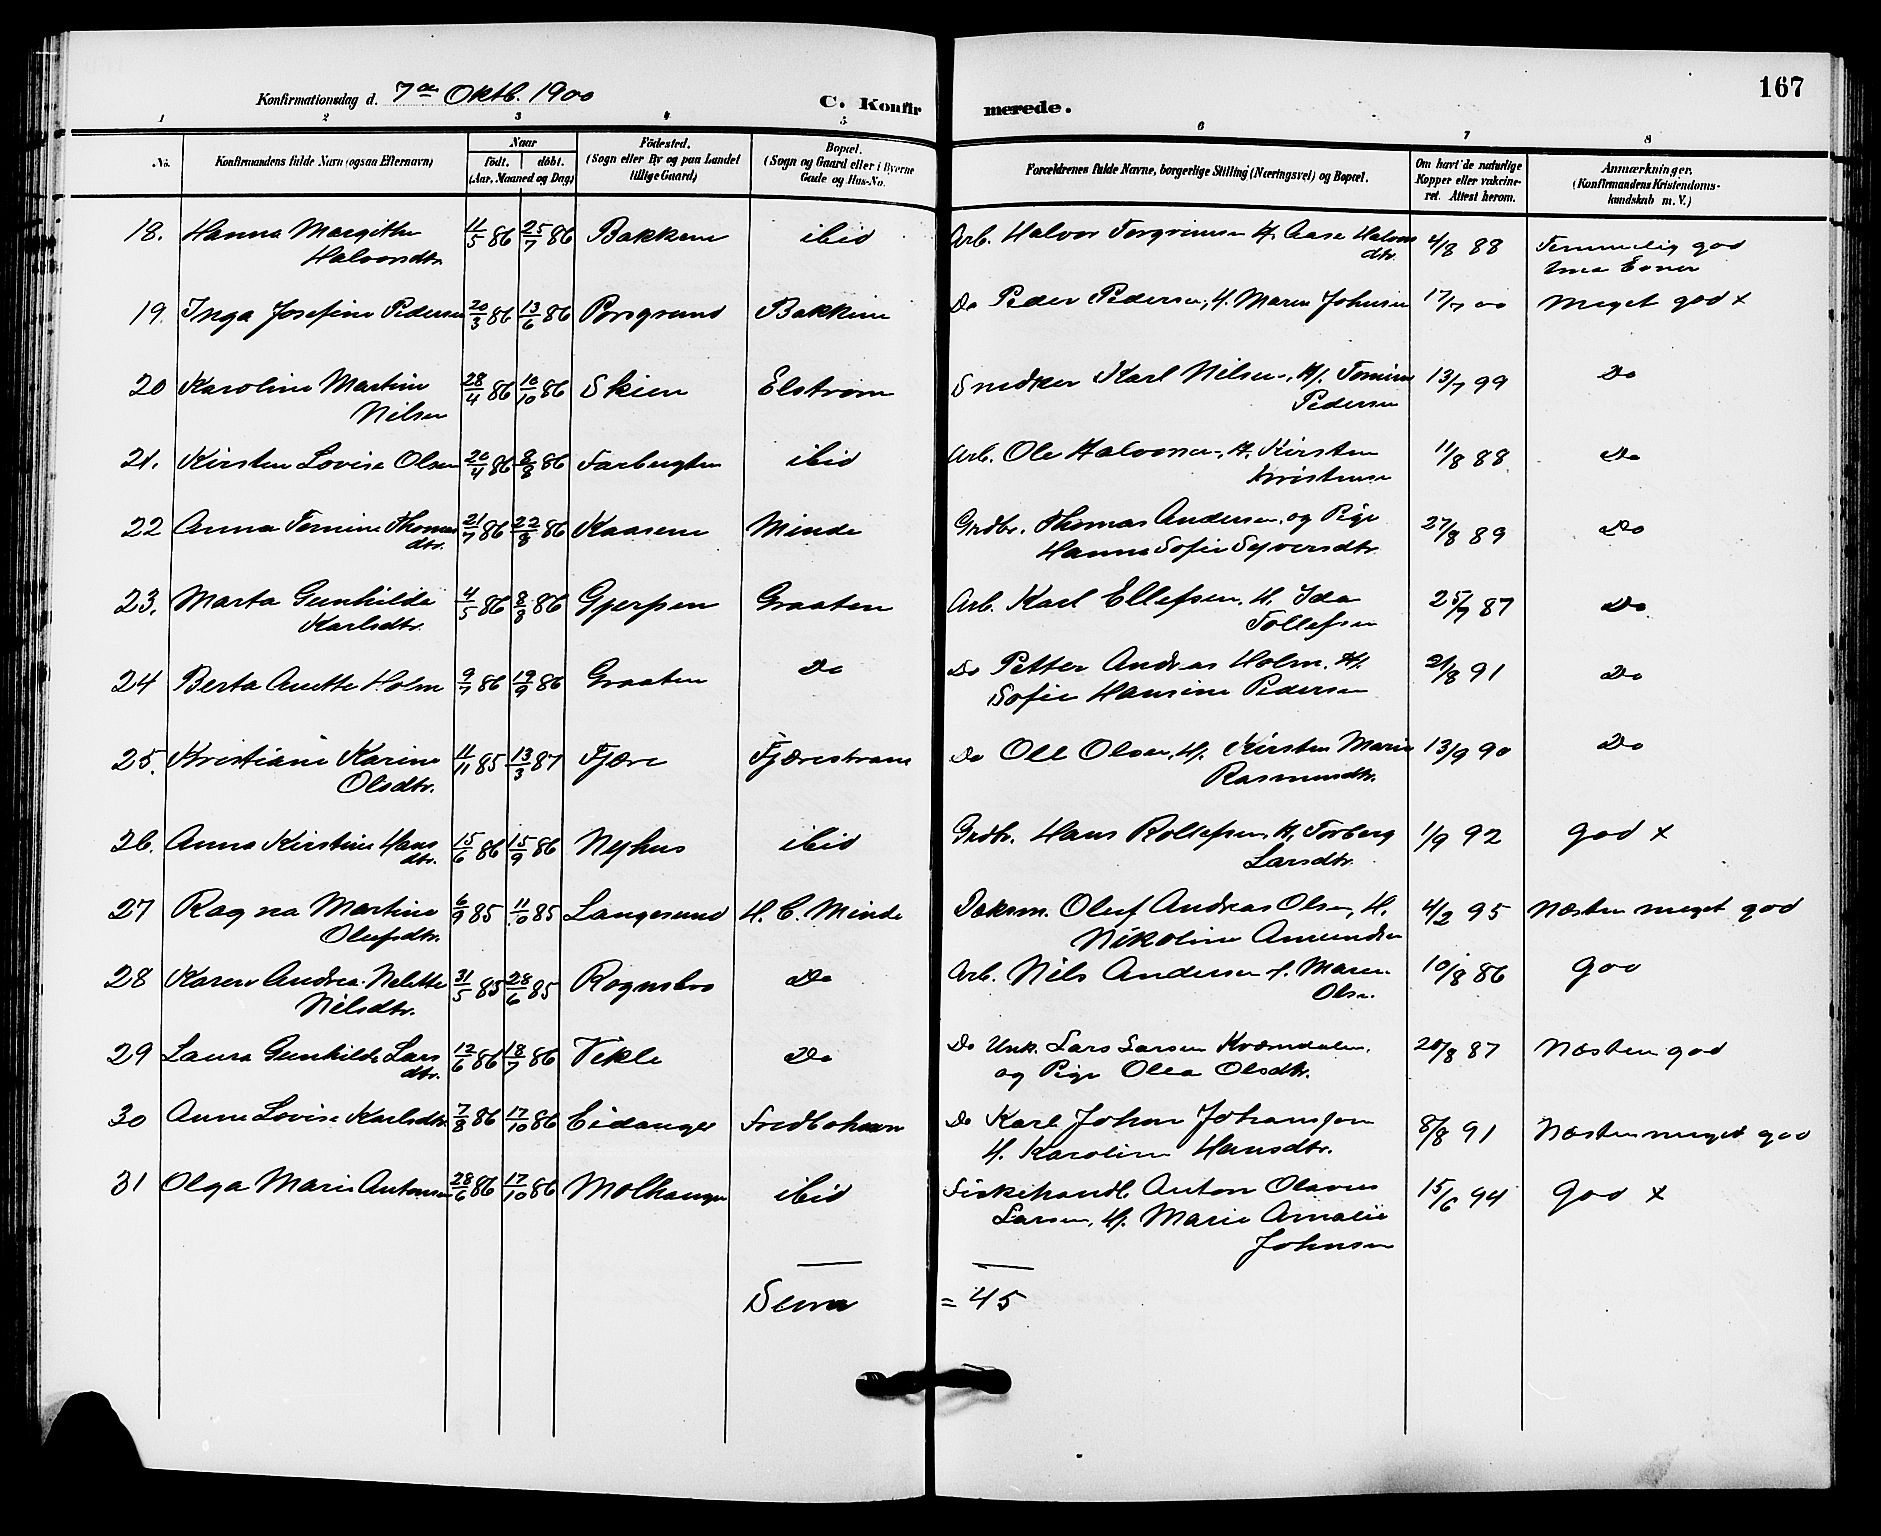 167
Konfirmationsdag d. 7de Oktb. 1900
C. Konfirmerede.
1 2 3 4 5 6 7 8
No.
Konfirmandens fulde Navn (ogsaa Efternavn)
Naar
født. døbt.
(Aar, Maaned og Dag)
Fødested.
(Sogn eller By og paa Landet
tillige Gaard)
Bopæl.
(Sogn og Gaard eller i Byerne
Gade og Hus-No.
Forældrenes fulde Navne, borgerlige Stilling (Næringsvei) og Bopæl.
Om havt de naturlige
Kopper eller vakcine-
ret. Attest herom.
Anmærkninger.
(Konfirmandens Kristendoms-
kundskab m. V.)
18. Hanna Margithe 11/5 86 25/7 86 Bakkene ibid Arb. Halvor Torgrimsen H. Aase Halvors 4/8 88 Temmelig god
Halvorsdtr. dtr. Evner
19. Inga Josefine Pedersen 20/3 86 13/6 86 Porsgrund Bakkene Do Peder Pedersen, H. Maren Johnsen 17/7 00 Meget god x
20 Karoline Martine 28/4 86 10/10 86 Skien Elstrøm Snedker Karl Nilsen, H. Tomine 13/7 99 Do
Nilsen Pedersen
21. Kirsten Lovise Olsen 20/4 86 8/8 86 ibid Arb. Ole Halvorsen, H. Kirsten 11/8 88 Do
Kristense
22 Anna Tomine Thomas 21/7 86 22/8 86 Kaasene Minde Grdbr. Thomas Andersen og Pige 27/8 89 Do
dtr. Hanna Sofie Syversdtr.
23. Marta Gunhilde 4/5 86 8/8 86 Gjerpen Graaten Arb. Karl Ellefsen, H. Ida 25/7 87 Do
Karlsdtr. Tollefsen
24 Berta Anette Holm 9/7 86 19/9 86 Graaten Do Do Petter Andreas Holm. H. 21/8 91 Do
Sofie Hansine Pedersen
25. Kristiane Karine 11/11 85 13/3 87 Fjære Fjærestrand Do Ole Olsen, H. Kirsten Marie 13/9 90 Do
Olsdtr. Rasmusdtr.
26. Anna Kirstine Hans 15/6 86 15/9 86 Nyhus ibid Grdbr. Hans Rollefsen, H. Torberg 1/9 92 god x
dtr. Larsdtr.
27 Ragna Martine 6/9 85 11/10 85 Langesund H. C. Minde Oluf Andreas Olsen, H. 4/2 95 Næsten meget god
Olufsdtr. Nikoline Amundsen
28 Karen Andrea Nelette 31/5 85 28/6 85 Rognsbro Do Arb. Nils Andersen H. Maren 10/8 86 god
Nilsdtr. Olsen.
29 Laura Gunhilde Lars 12/6 86 18/7 86 Vekle Do Do Unk. Lars Larsen Kvæmdalen, 20/8 87 Næsten god
dtr. og Pige Olea Olsdtr.
30 Anne Lovise Karlsdtr. 7/8 86 17/10 86 Eidanger Do Karl Johan Johansson 8/8 91 Næsten meget god
H. Karoline Hansdtr.
31 Olga Marie Antonsen 28/6 86 17/10 86 Molhaugen ibid Fiskehandl. Anton Olavus 15/6 94 god x
Larsen, H. Marie Amalie
Johnsen
Sum = 45